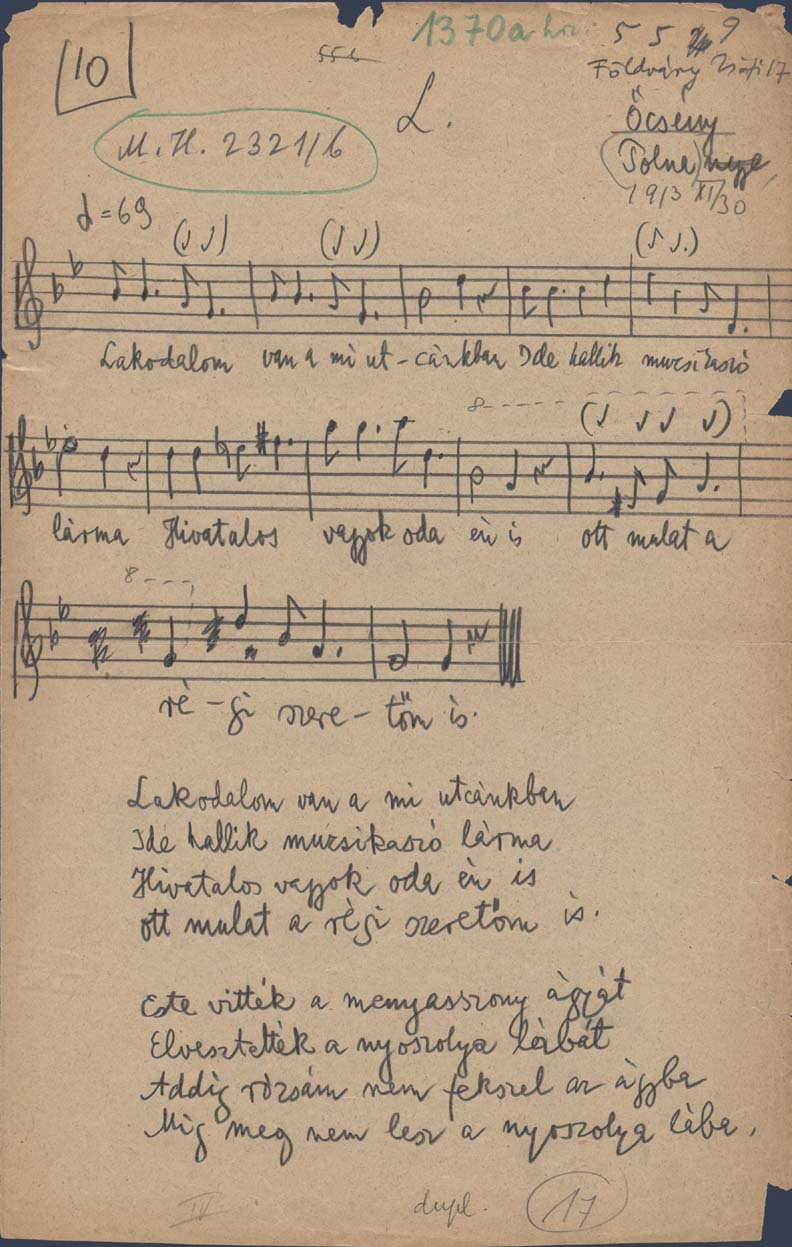 10
1370a
5 5 9
Földváry 17
L.
M. H. 2321/6
Őcsény
(Tolna)
1913 XI/30
= 69
Lakodalom van a mi ut - cánkban Ide hallik muzsikaszó
8
lárma Hivatalos vagyok oda én is ott mulat a
8
ré - gi szere - tőm is.
Lakodalom van a mi utcánkban
Ide hallik muzsikaszó lárma
Hivatalos vagyok oda én is
ott mulat a régi szeretőm is.
Este vitték a menyasszony ágyát
Elvesztették a nyoszolya lábát
Addig rózsám nem fekszel az ágyba
Mig meg nem lesz a nyoszolya lába.
IV
dupl.
17